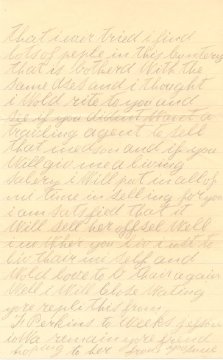 that i ever tried i find
lots of peple in this Cuntery
that is botherd With the
same  and i thought
i Wold rite to you and
See if you  Want a
traviling agent to sell
that medson and if you
Will give me a living
salery i Will put in all of
mi time in selling for you
i am satisfied that it
Will Sell her  sel Well
i no Wher you liv i use to
liv thair mi self and
Wold love to  thair again
Well i Will Close Wating
yore repli this from
J Perkins to Weeks & 
iowa remain yore friend
hoping to her from you soon